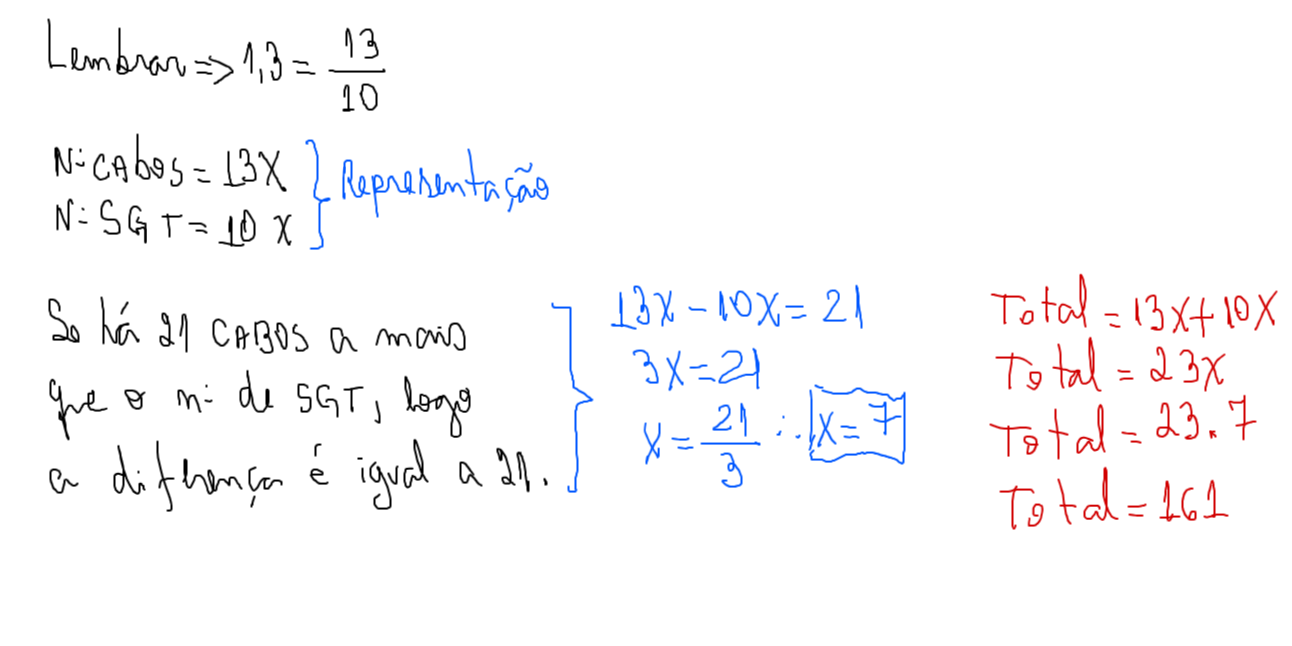 Lembrar => 1,3 = 13/10
Nº CABOS = 13X
Nº SGT = 10 X
Representação
Se há 21 CABOS a mais
que o nº de SGT, logo
a diferença é igual a 21.
13X - 10X = 21
3X = 21
X = 21/3 ∴ X = 7
Total = 13X + 10X
Total = 23X
Total = 23.7
Total = 161